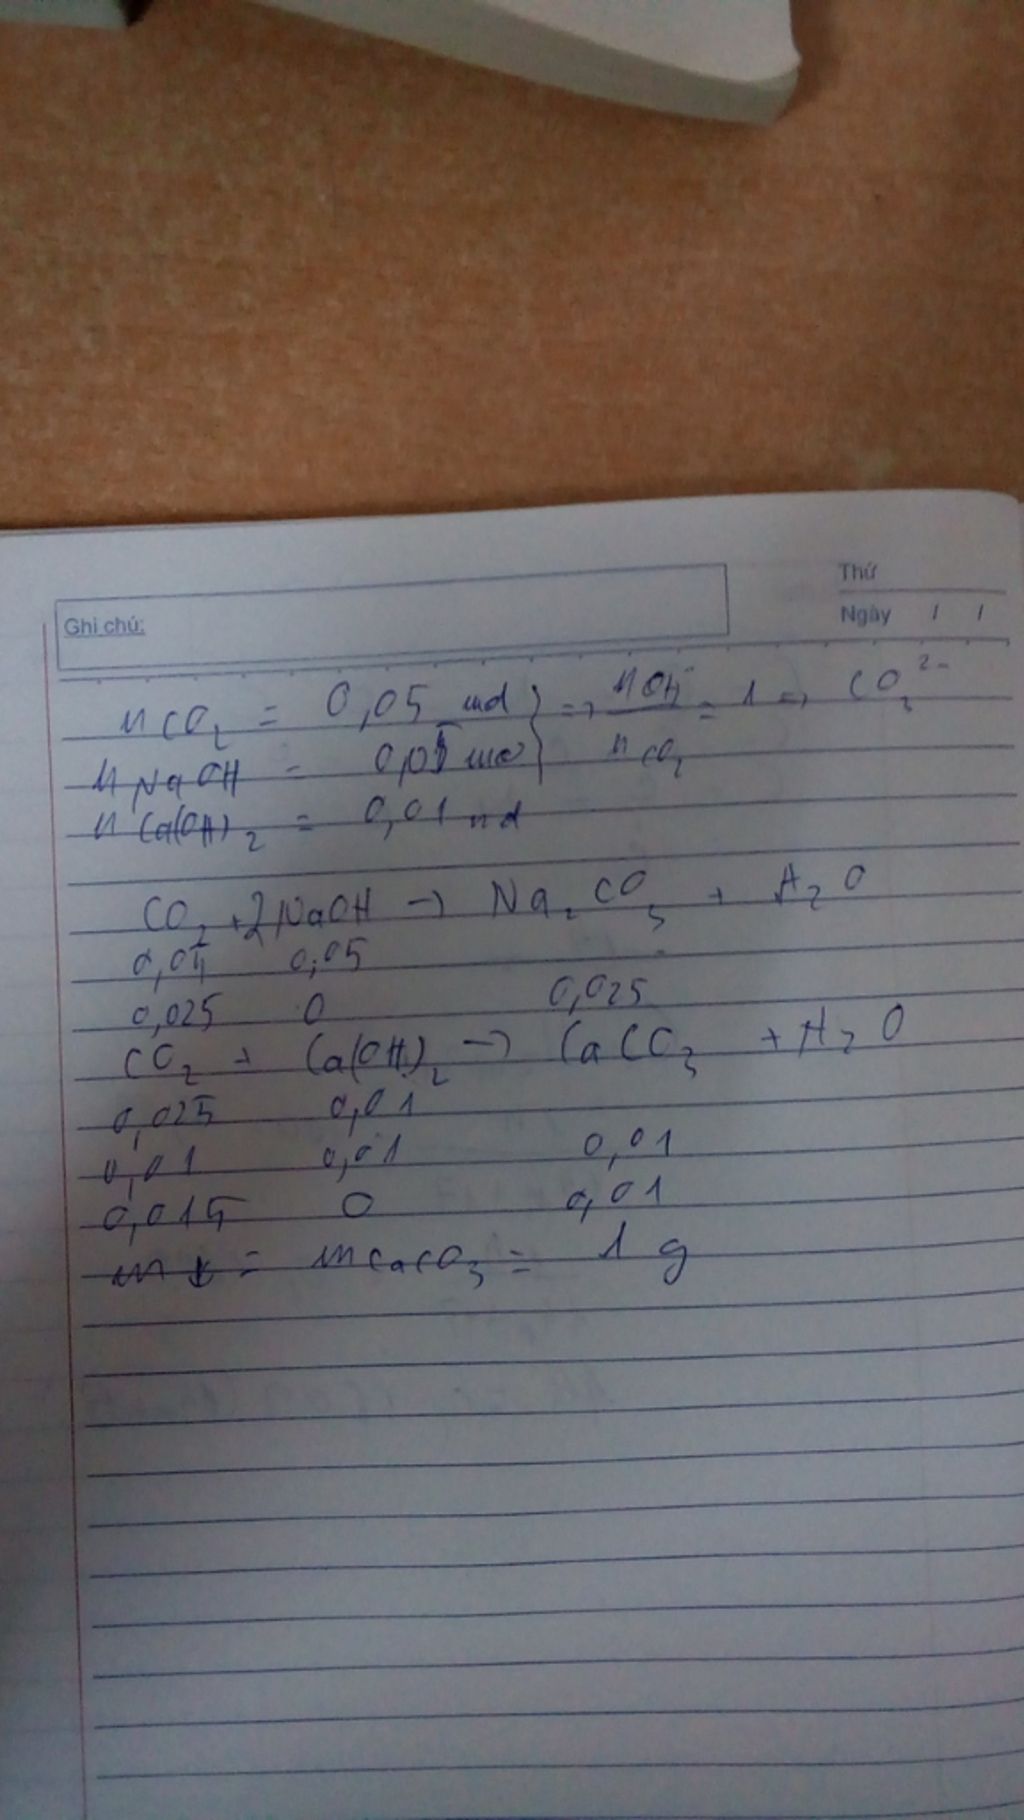 Thứ
Ghi chú:
Ngày / /
nCO₂ = 0,05 mol } => nOH⁻/nCO₂ = 1 => CO₃²⁻
nNaOH = 0,05 mol
nCa(OH)₂ = 0,01 mol
CO₂ + 2NaOH → Na₂CO₃ + H₂O
0,05 0,05
0,025 0 0,025
CO₂ + Ca(OH)₂ → CaCO₃ + H₂O
0,025 0,01
0,01 0,01 0,01
0,015 0 0,01
m↓ = mCaCO₃ = 1 g